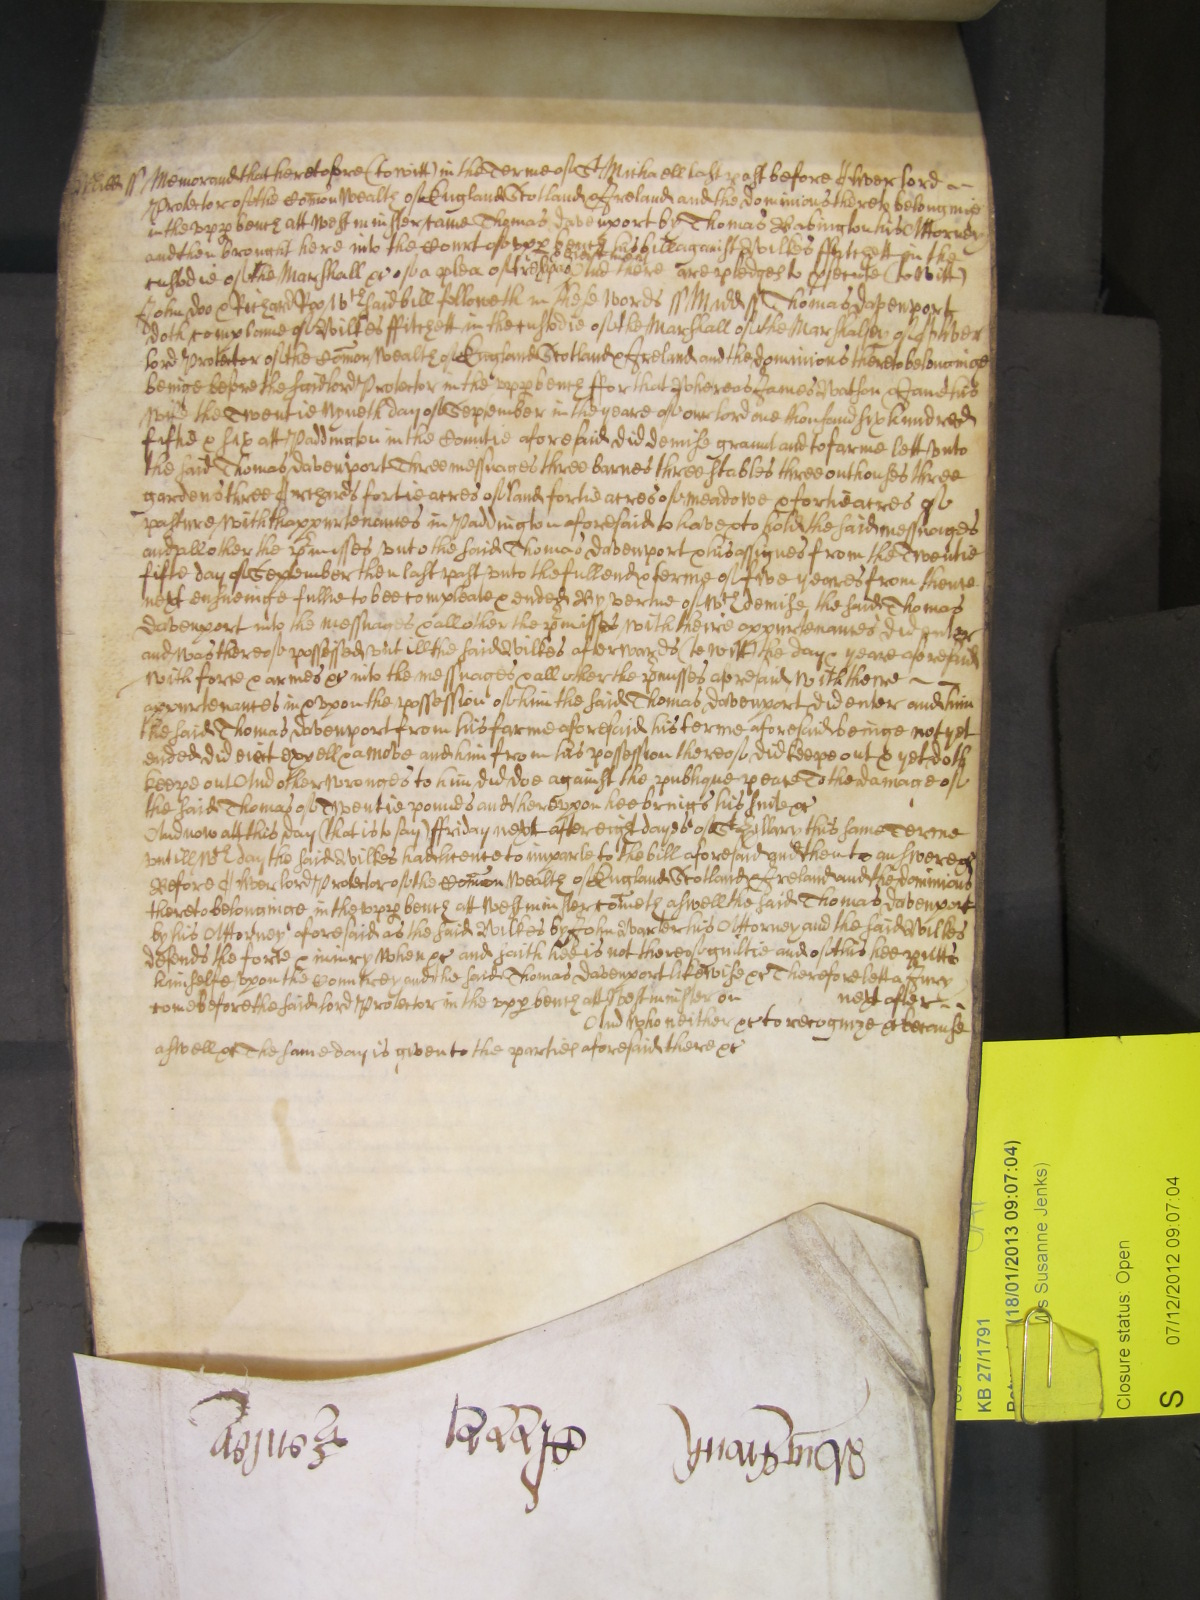 Midd ss Memorand that heretofore (to witt) in the Terme of St Michaell last past before Oliver lord
Protector of the Comon Wealth of England Scotland & Ireland and the dominions thereto belonginge
in the upp bench att Westminster came Thomas Davenport by Thomas Babington his Attorney
and then brought here into the Court of upp bench his bill against Wilkes ffitchett in the
custodie of the Marshall &c of a plea of trespas And there are pledges to prosecute (to witt)
John Doo & Richard Roo Wch said bill followeth in these words ss Midd ss Thomas Davenport
doth complaine of Wilkes ffitchett in the custodie of the Marshall of the Marshalsea of Oliver
lord Protector of the Comon Wealth of England Scotland & Ireland and the dominions thereto belonginge
beinge before the said lord Protector in the upp bench ffor that Whereas James Watson & Jane his
Wife the Twentie Nyneth day of September in the yeare of our lord one thousand six hundred
fiftie & six att Paddington in the Countie aforesaid did demise graunt and to farme lett unto
the said Thomas Davenport Three messuages three barnes three stables three outhouses three
gardens three Orchards fortie acres of land fortie acres of meadowe & fortie acres of
pasture With thappurtenances in Paddington aforesaid to have & to hold the said messuages
and all other the pmisses unto the said Thomas Davenport & his assignes from the Twentie
fifte day of September then last past unto the full end & terme of five yeares from thence
next ensueinge fullie to bee compleate & ended By vertue of Wch demise the said Thomas
Davenport into the messuages & all other the pmisses With theire appurtenances did enter
and was thereof possessed untill the said Wilkes afterwards (to witt) the day & yeare aforesaid
With force & armes &c into the messuages & all other the pmisses aforesaid With theire
appurtenances in & upon the possession of him the said Thomas Davenport did enter and him
the said Thomas Davenport from his farme aforesaid his terme aforesaid beinge not yet
ended did eiect expell & amove and him from his possession thereof did keepe out & yet doth
keepe out And other Wronges to him did doe against the publique peace To the damage of
the said Thomas of Twentie pounds and thereupon hee brings his suite &c
And now att this day (that is to say) ffriday next after eight dayes of St Hillary this same Terme
untill Wch day the said Wilkes had licence to imparle to the bill aforesaid and then to answere &c
Before Oliver lord Protector of the Comon Wealth of England Scotland & Ireland and the dominions
thereto belonginge in the upp bench att Westminster cometh aswell the said Thomas Davenport
by his Attorney aforesaid as the said Wilkes by John Warter his Attorney and the said Wilkes
defends the force & iniury When &c and saith hee is not thereof guiltie and of this hee putts
himselfe upon the Countrey and the said Thomas Davenport likewise &c Therefore lett a Jury
come before the said lord Protector in the upp bench att Westminster on next after
And Who neither &c to recognize &c because
aswell &c The same day is given to the parties aforesaid there &c
KB 27/1791
(18/01/2013 09:07:04)
Susanne Jenks)
Closure status: Open
S 07/12/2012 09:07:04